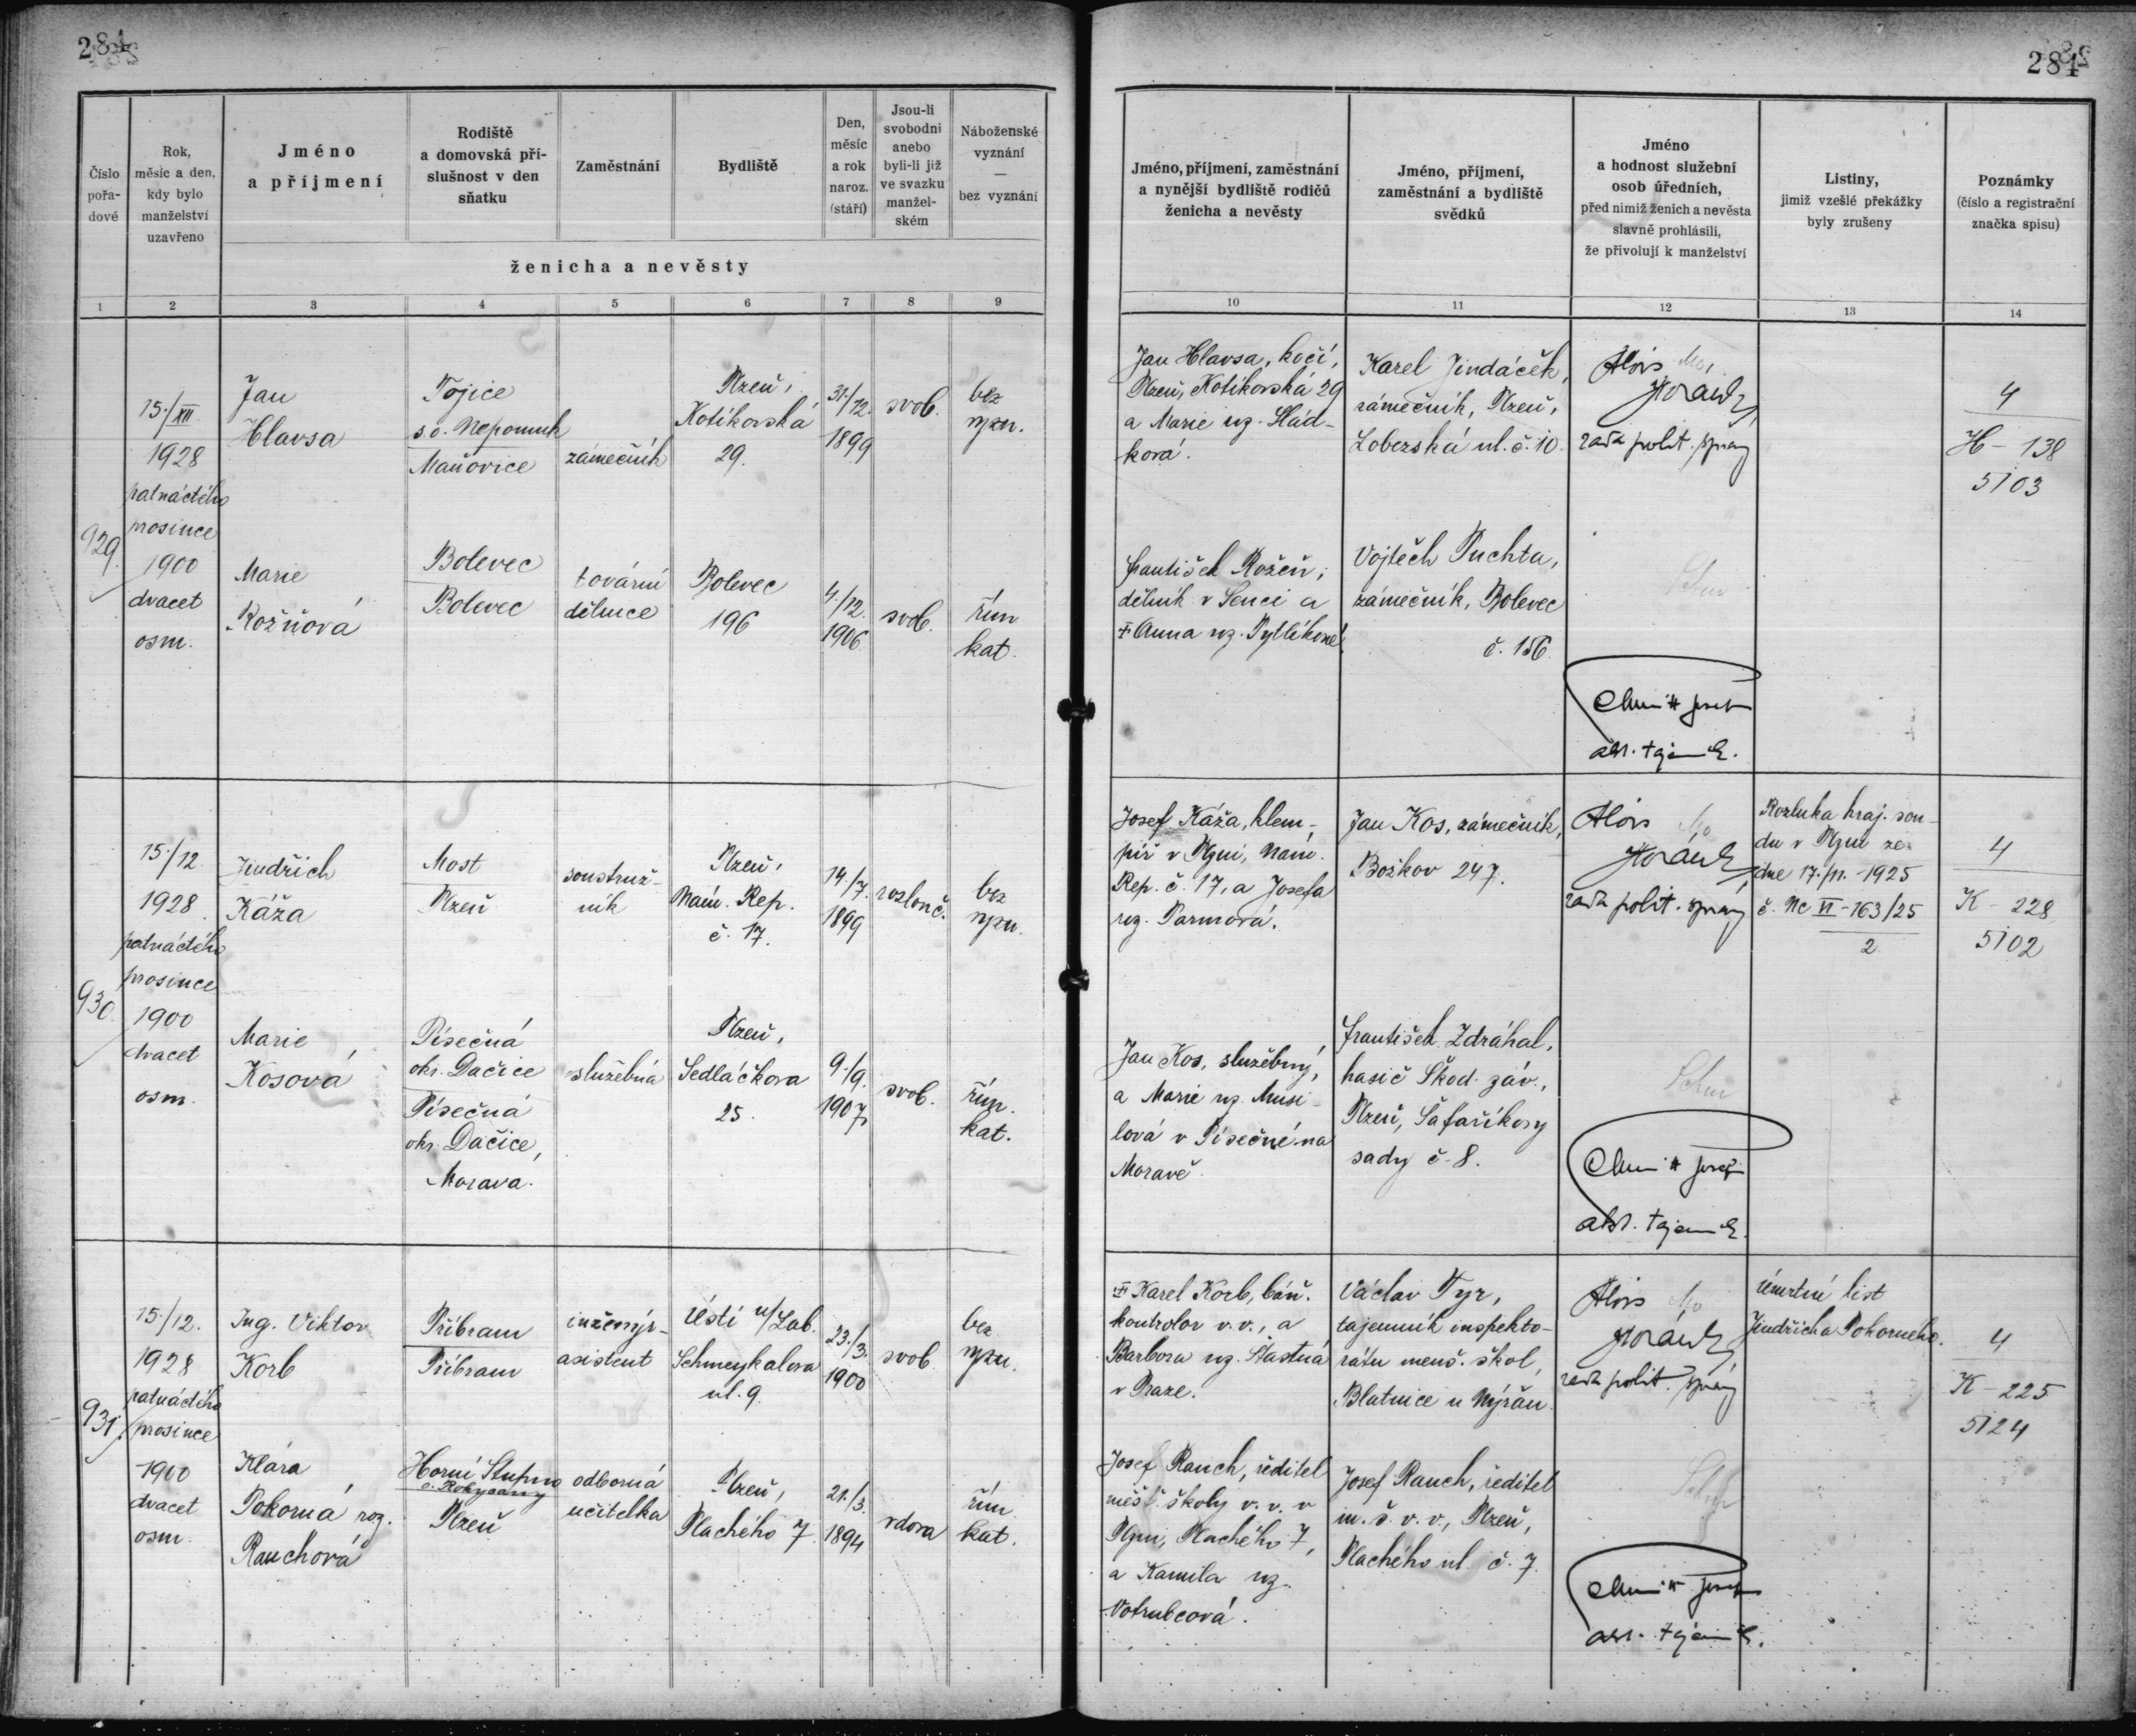 284
284
Číslo pořa-dové
Rok, měsíc a den, kdy bylo manželství uzavřeno
Jméno a příjmení
Rodiště a domovská pří-slušnost v den sňatku
Zaměstnání
Bydliště
Den, měsíc a rok naroz. (stáří)
Jsou-li svobodni anebo byli-li již ve svazku manžel-ském
Náboženské vyznání — bez vyznání
ženicha a nevěsty
Jméno, příjmení, zaměstnání a nynější bydliště rodičů ženicha a nevěsty
Jméno, příjmení, zaměstnání a bydliště svědků
Jméno a hodnost služební osob úředních, před nimiž ženich a nevěsta slavně prohlásili, že přivolují k manželství
Listiny, jimiž vzešlé překážky byly zrušeny
Poznámky (číslo a registrační značka spisu)
1 2 3 4 5 6 7 8 9 10 11 12 13 14
929.
15./XII
1928
patnáctého
prosince
1900
dvacet
osm.
Jan
Hlavsa
Tojice
s.o. Nepomuk
Maňovice
zámečník
Plzeň,
Kotíkovská
29.
31./12.
1899
svob.
bez
vyzn.
Jan Hlavsa, kočí,
Plzeň, Kotíkovská 29
a Marie roz. Slád-
ková.
Karel Jindáček,
zámečník, Plzeň,
Lobezská ul. č. 10.
Alois
rada polit. správy
4
H - 138
5103
Marie
Rožňová
Bolevec
Bolevec
tovární
dělnice
Bolevec
196
4./12.
1906
svob.
řím.
kat.
František Rožeň,
dělník v Senci a
Anna roz. Pytlíková.
Vojtěch Puchta,
zámečník, Bolevec
č. 156.
930.
15./12
1928
patnáctého
prosince
1900
dvacet
osm.
Jindřich
Káža
Most
Plzeň
soustruž-
ník
Plzeň,
Nám. Rep.
č. 17.
14./7.
1899
rozlouč.
bez
vyzn.
Josef Káža, klem-
píř v Plzni, Nám.
Rep. č. 17, a Josefa
roz. Parmová.
Jan Kos, zámečník,
Božkov 247.
Alois
rada polit. správy
Rozluka kraj. sou-
du v Plzni ze
dne 17./11. 1925
č. Nc VI - 163/25
2
4
K - 228
5102
Marie
Kosová
Písečná
okr. Dačice
Písečná
okr. Dačice,
Morava.
služebná
Plzeň,
Sedláčkova
25.
9./9.
1907
svob.
řím.
kat.
Jan Kos, služebný,
a Marie roz. Musi-
lová v Písečné na
Moravě.
František Zdráhal,
hasič Škod. záv.,
Plzeň, Šafaříkovy
sady č. 8.
931.
15./12.
1928
patnáctého
prosince
1900
dvacet
osm.
Ing. Viktor
Korb
Příbram
Příbram
inženýr-
asistent
Ústí n/Lab.
Schmeykalova
ul. 9.
23./3.
1900
svob.
bez
vyzn.
Karel Korb, báň.
kontrolor v.v., a
Barbora roz. Šťastná
v Praze.
Václav Tyr,
tajemník inspekto-
rátu menš. škol,
Blatnice u Nýřan.
Alois
rada polit. správy
úmrtní list
Jindřicha Pokorného.
4
K - 225
5124
Klára
Pokorná roz.
Rauchová
Horní Stupno
o. Rokycany
Plzeň
odborná
učitelka
Plzeň,
Plachého 7
21./3.
1894
vdova
řím.
kat.
Josef Rauch, ředitel
měšť. školy v.v. v
Plzni, Plachého 7,
a Kamila roz.
Votrubcová.
Josef Rauch, ředitel
m. š. v. v., Plzeň,
Plachého ul. č. 7.